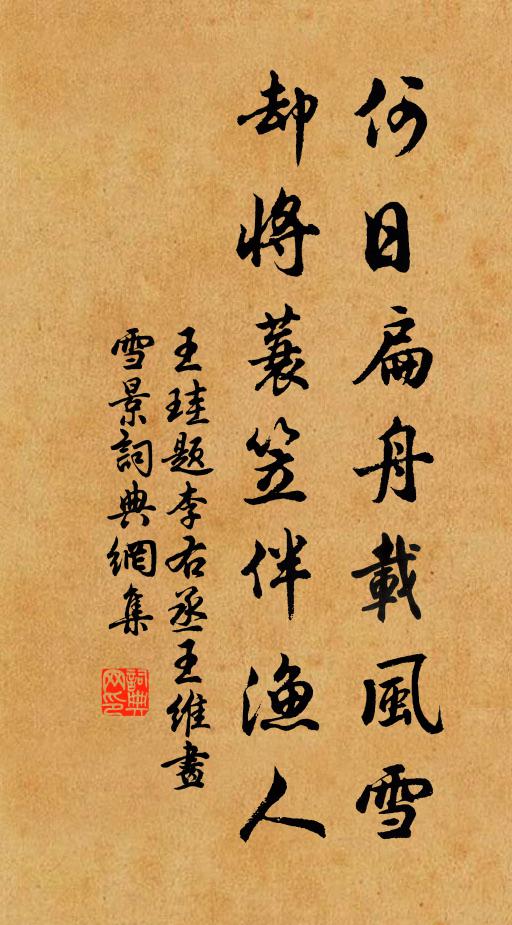 何日扁舟載風雪
却將蓑笠伴漁人
王珪題李右丞王維畫
雪景詞典網集
詞典網印